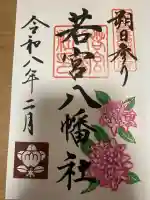 朔日参り
若宮八幡社
令和八年二月